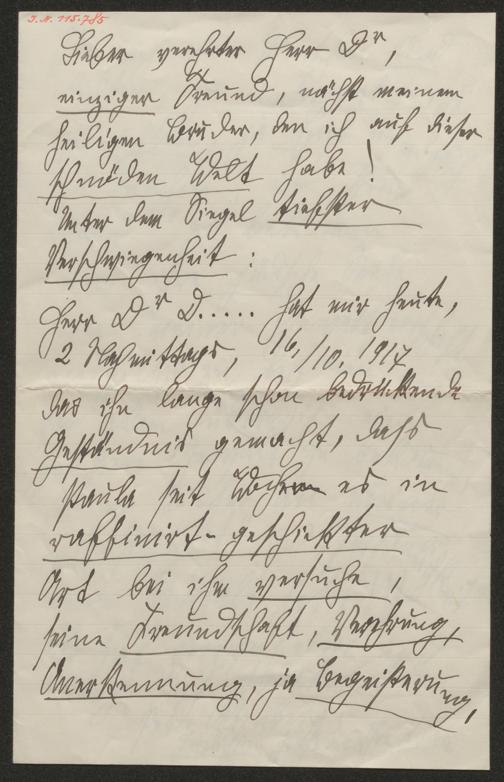 I.N. 115.785
Lieber verehrter Herr Dr,
einziger Freund, nächst meinem
heiligen Bruder, den ich auf dieser
schnöden Welt habe!
Unter dem Siegel tiefster
Verschwiegenheit:
Herr Dr D..... hat mir heute,
2 Nachmittags, 16./10. 1917
das ihn lange schon bedrückende
Geständnis gemacht, dass
Paula seit Wochen es in
raffinirt-geschicktester
Art bei ihm versuche,
seine Freundschaft, Verehrung,
Anerkennung, ja Begeisterung,